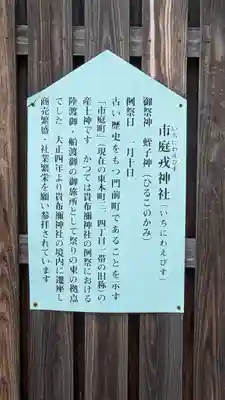 いちにわえびす
市庭戎神社(いちにわえびす)
御祭神 蛭子神(ひるこのかみ)
例祭日 一月十日
古い歴史をもつ門前町であることを示す
「市庭町」(現在の東本町三、四丁目一帯の旧称)の
産土神です かつては貴布禰神社の例祭における
陸渡御・船渡御の御旅所として祭りの東の拠点
でした 大正四年より貴布禰神社の境内に遷座し
商売繁盛・社業繁栄を願い参拝されています